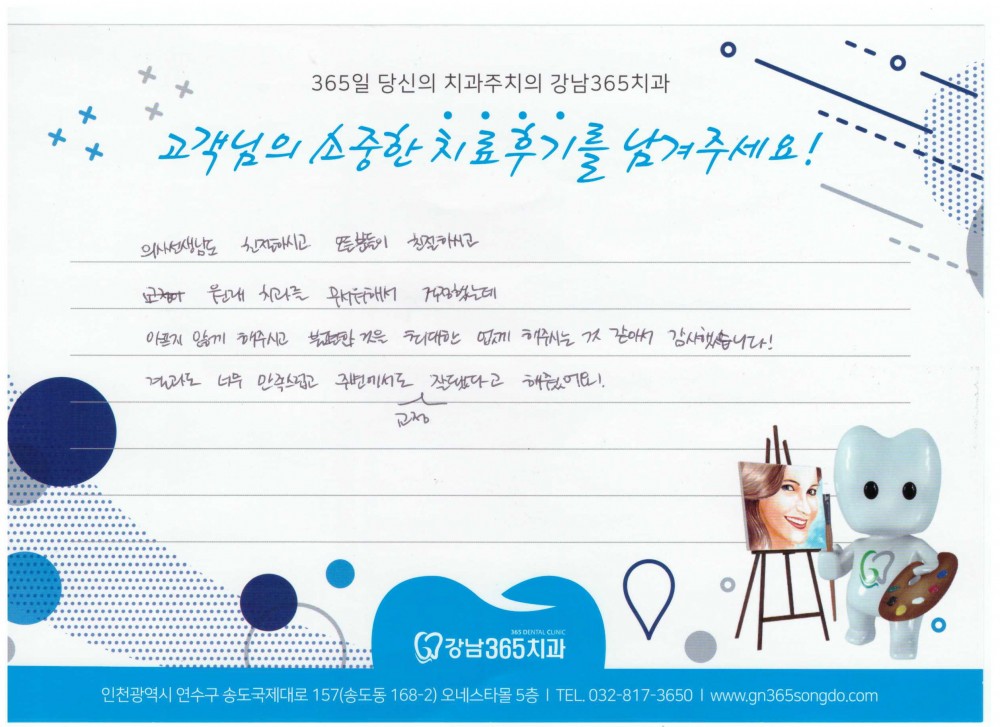 365일 당신의 치과주치의 강남365치과
고객님의 소중한 치료후기를 남겨주세요!
의사선생님도 친절하시고 모든분들이 친절하시고
원래 치과를 무서워해서 걱정했는데
아프지 않게 해주시고 불편한 것은 최대한 없게 해주시는 것 같아서 감사했습니다!
결과도 너무 만족스럽고 주변에서도 잘됐다고 해줬어요!
교정
365 DENTAL CLINIC
강남365치과
인천광역시 연수구 송도국제대로 157(송도동 168-2) 오네스타몰 5층 l TEL. 032-817-3650 l www.gn365songdo.com